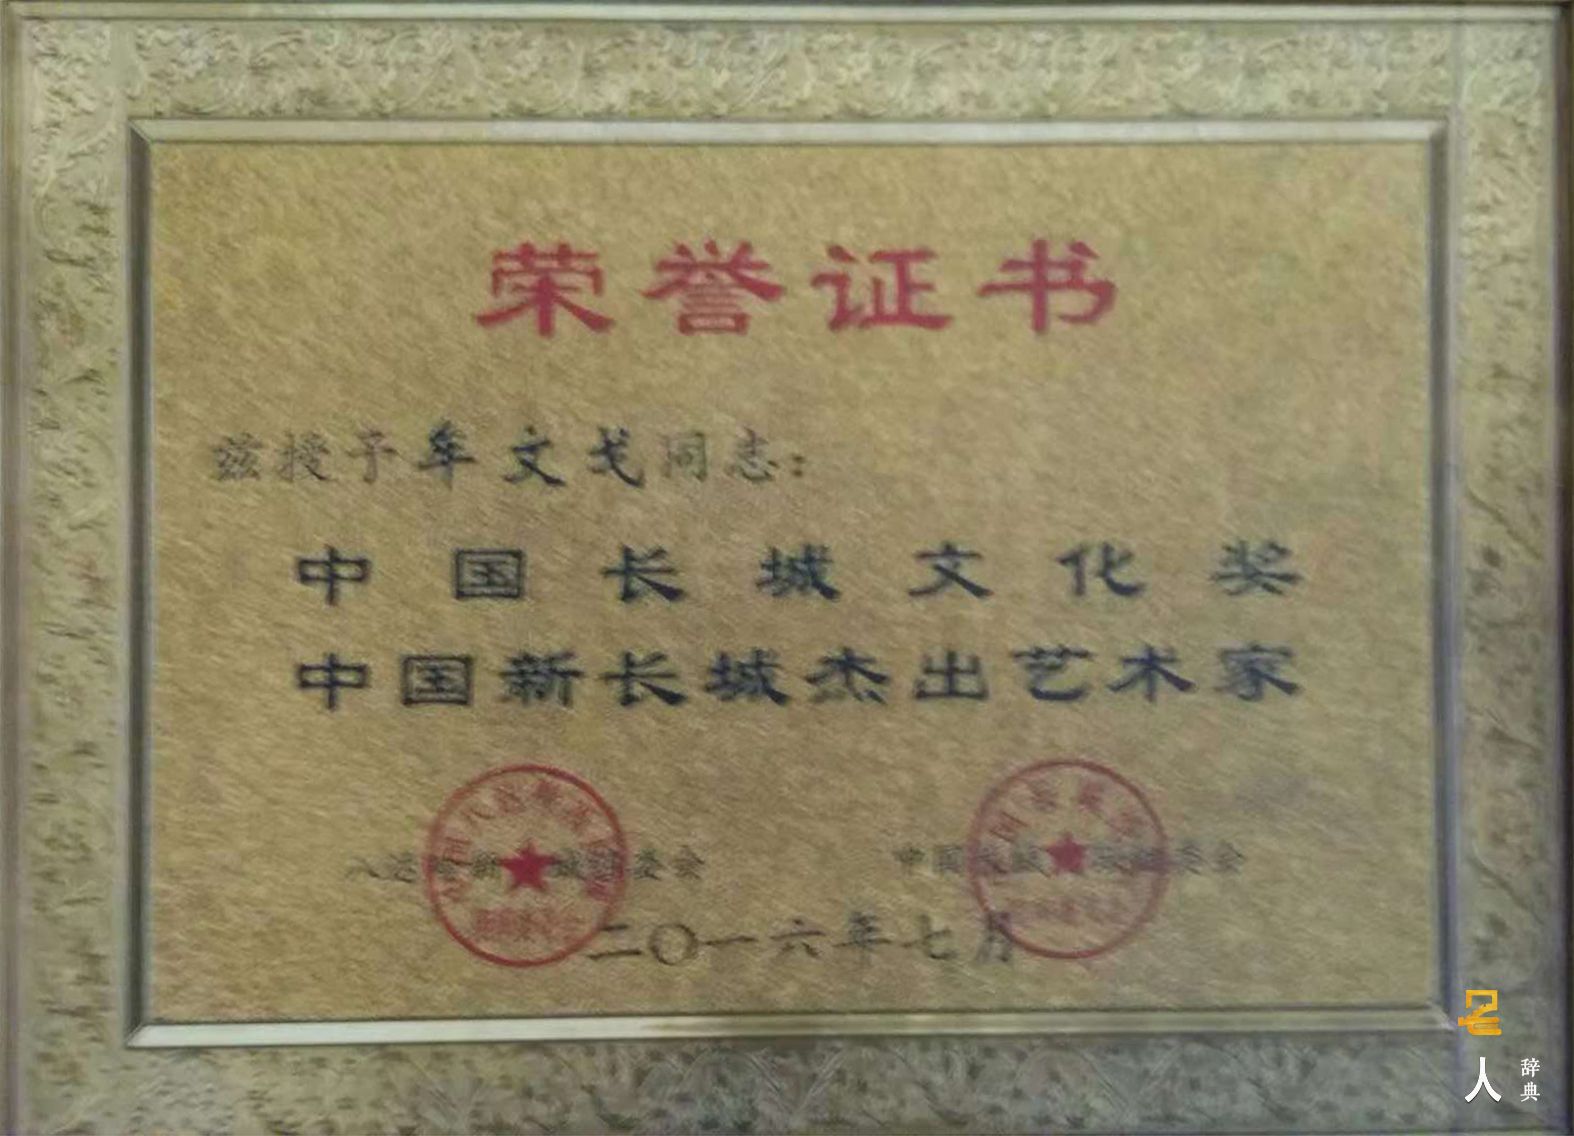 荣誉证书
兹授予牟文戈同志：
中国长城文化奖
中国新长城杰出艺术家
八达 新 城 委会
中国长城 委会
二〇一六年七月
人
辞典